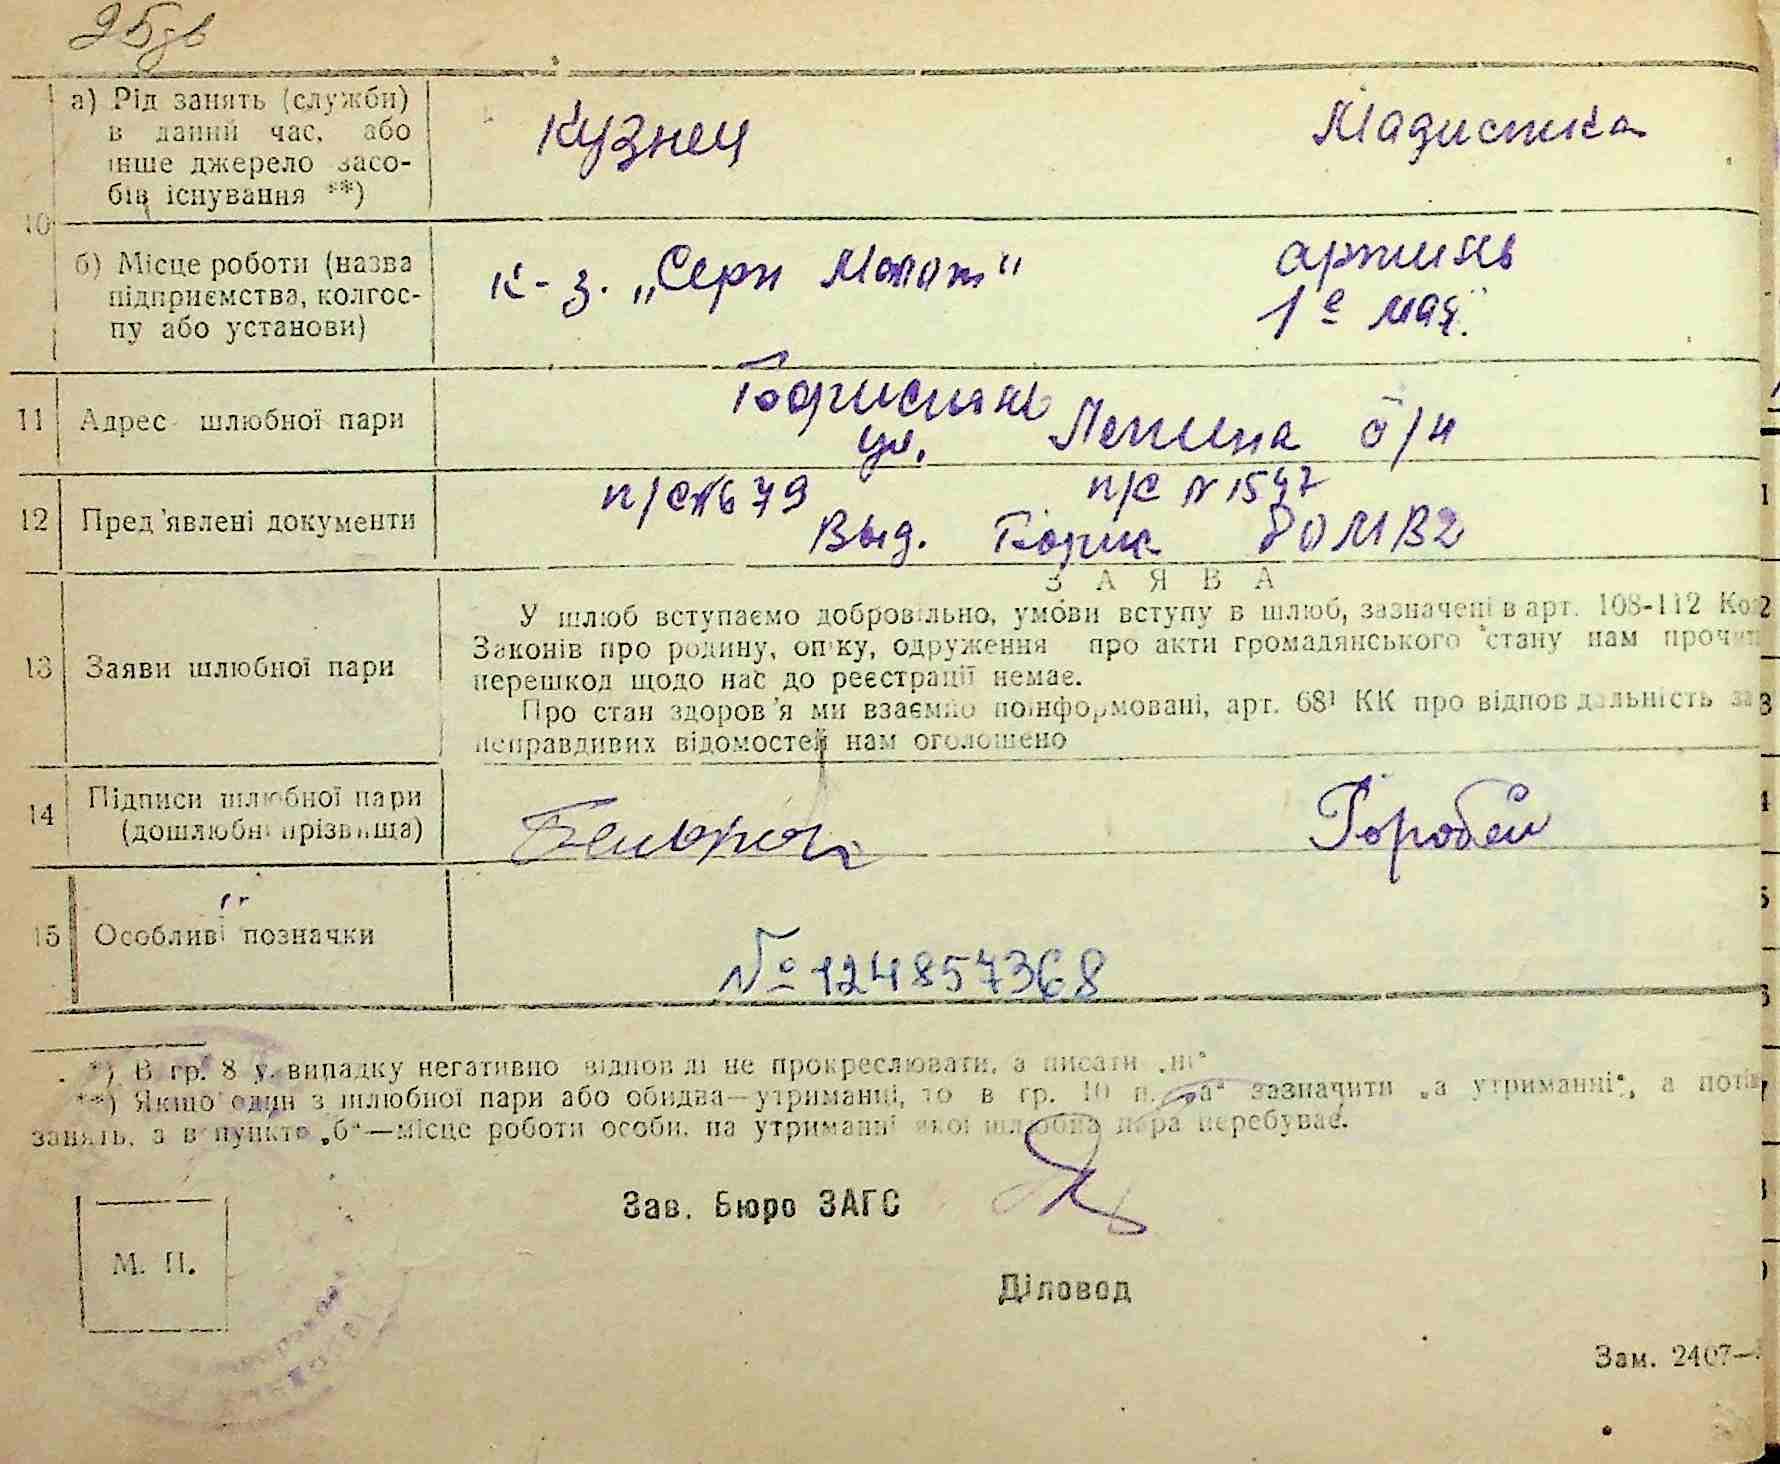 а) Рід занять (служби)
в даний час, або
інше джерело засо-
бів існування **)
Кузнец
Мадистка
10
б) Місце роботи (назва
підприємства, колгос-
пу або установи)
к-з. „Серп Молот"
артиль
1 е мая.
11
Адрес шлюбної пари
Бориспаль
ул. Ленина б/н
12
Пред'явлені документи
п/с № 679
п/с № 1547
Выд. Борис РОМВД
ЗАЯВА
13
Заяви шлюбної пари
У шлюб вступаємо добровільно, умови вступу в шлюб, зазначені в арт. 108-112 Ко
Законів про родину, опіку, одруження про акти громадянського стану нам прочит
перешкод щодо нас до реєстрації немає.
Про стан здоров'я ми взаємно поінформовані, арт. 68¹ КК про відповідальність за
неправдивих відомостей нам оголошено
14
Підписи шлюбної пари
(дошлюбні прізвища)
Горобей
15
Особливі позначки
№ 124857368
*) В гр. 8 у випадку негативно відповіді не прокреслювати, а писати „ні"
**) Якщо один з шлюбної пари або обидва—утриманці, то в гр. 10 п. „а" зазначити „а утриманні", а потім
занять, а в пункте „б"—місце роботи особи, на утриманні якої шлюбна пара перебуває.
Зав. Бюро ЗАГС
М. П.
Діловод
Зам. 2407—